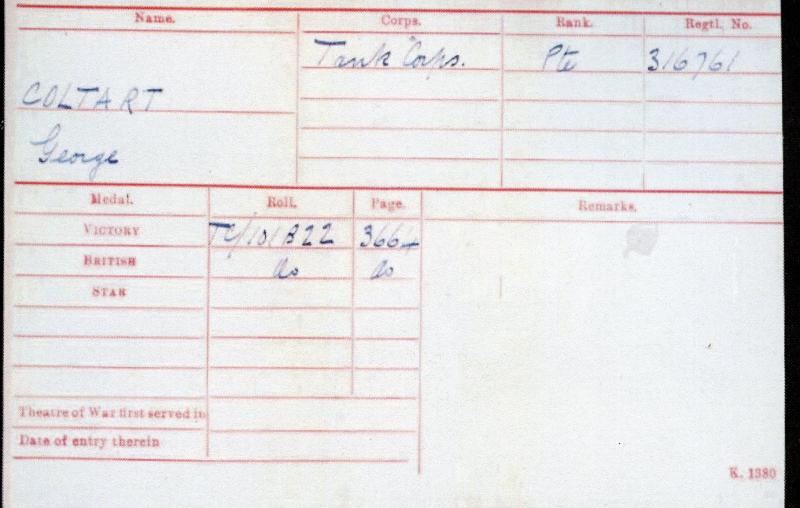 Name. Corps. Rank. Regtl. No.
Tank Corps. Pte 316761
COLTART
George
Medal. Roll. Page. Remarks.
VICTORY TC/101B22 3664
BRITISH do do
STAR
Theatre of War first served in
Date of entry therein
K. 1380